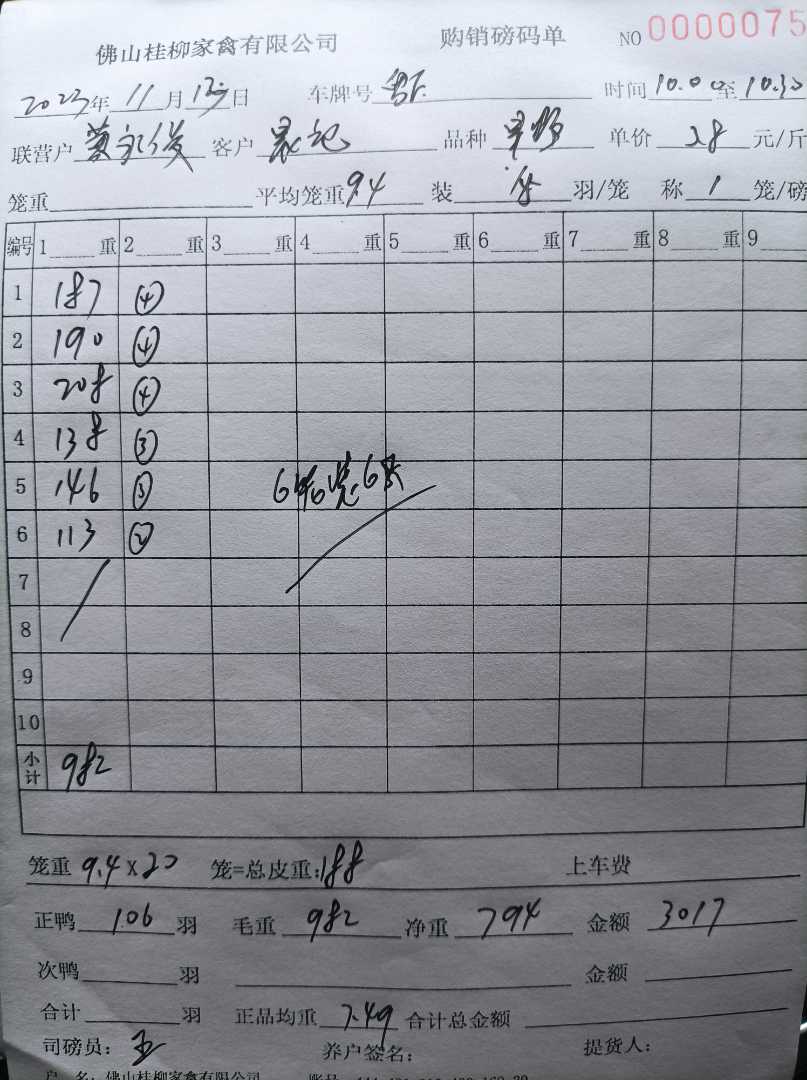 佛山桂柳家禽有限公司 购销磅码单 NO 0000075
2023年 11月 13日 车牌号 时间 10.00至10.30
联营户 客户 品种 单价 3.8 元/斤
笼重 平均笼重 9.4 装 羽/笼 称 1 笼/磅
编号 1 重 2 重 3 重 4 重 5 重 6 重 7 重 8 重 9
1 187 ④
2 190 ④
3 208 ④
4 138 ③
5 146 ③ 6只
6 113 ②
7
8
9
10
小计 982
笼重 9.4×20 笼=总皮重:188 上车费
正鸭 106 羽 毛重 982 净重 794 金额 3017
次鸭 羽 金额
合计 羽 正品均重 7.49 合计总金额
司磅员: 王 养户签名: 提货人:
户 名: 佛山桂柳家禽有限公司 账号